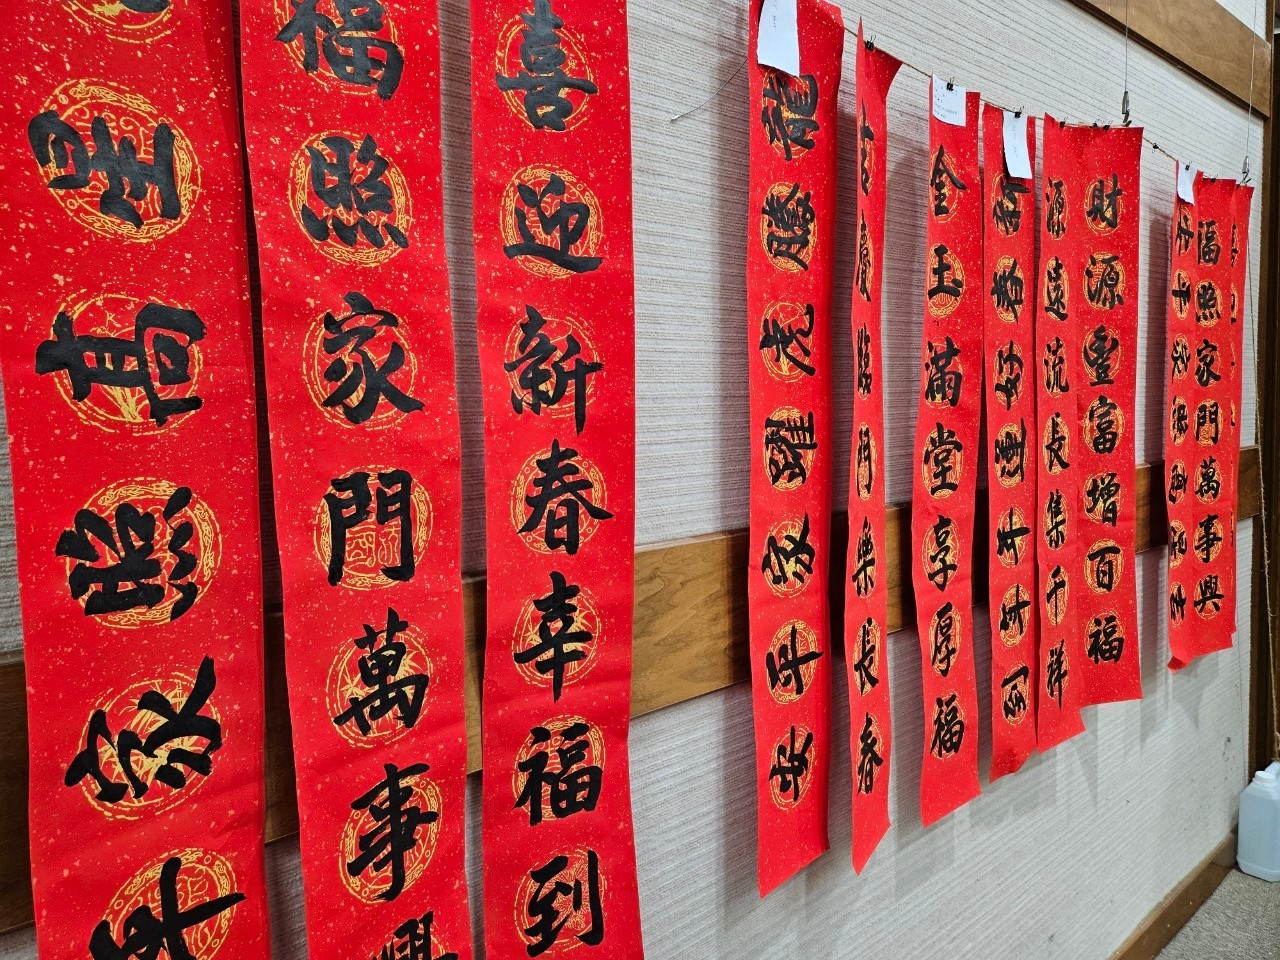 星高照家
福照家門萬事興
喜迎新春幸福到
龍騰虎躍家平安
吉慶臨門樂長春
金玉滿堂享厚福
源遠流長集千祥
財源豐富增百福
福照家門萬事興